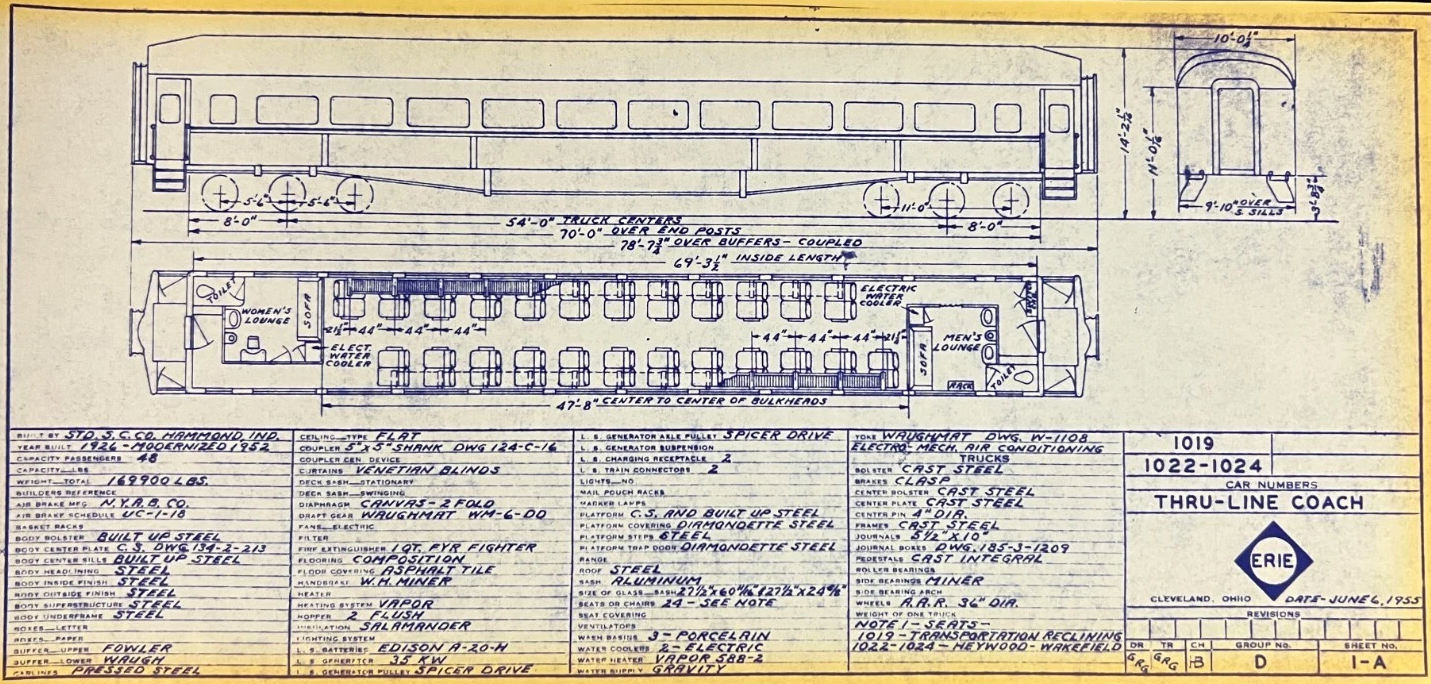 10'-0¼"
14'-2⅞"
9'-10" OVER S. SILLS
5'-6" 5'-6"
11'-0"
8'-0"
54'-0" TRUCK CENTERS
8'-0"
70'-0" OVER END POSTS
78'-7¾" OVER BUFFERS- COUPLED
69'-3½" INSIDE LENGTH
TOILET
WOMEN'S LOUNGE
SOFA
ELECT. WATER COOLER
21½" 44" 44" 44"
ELECTRIC WATER COOLER
44" 44" 44" 21½"
SOFA
MEN'S LOUNGE
RACK
TOILET
47'-8" CENTER TO CENTER OF BULKHEADS
BUILT BY STD. S. C. CO. HAMMOND, IND.
YEAR BUILT 1926 - MODERNIZED 1952
CAPACITY PASSENGERS 48
CAPACITY__LBS
WEIGHT__TOTAL 169900 LBS.
BUILDERS REFERENCE
AIR BRAKE MFG N.Y.A.B. CO.
AIR BRAKE SCHEDULE UC-1-18
BASKET RACKS
BODY BOLSTER BUILT UP STEEL
BODY CENTER PLATE C.S. DWG. 134-2-213
BODY CENTER SILLS BUILT UP STEEL
BODY HEADLINING STEEL
BODY INSIDE FINISH STEEL
BODY OUTSIDE FINISH STEEL
BODY SUPERSTRUCTURE STEEL
BODY UNDERFRAME STEEL
BOXES__LETTER
BOXES__PAPER
BUFFER__UPPER FOWLER
BUFFER__LOWER WAUGH
CARLINES PRESSED STEEL
CEILING__TYPE FLAT
COUPLER 5"X5" SHANK DWG 124-C-16
COUPLER CEN DEVICE
CURTAINS VENETIAN BLINDS
DECK SASH__STATIONARY
DECK SASH__SWINGING
DIAPHRAGM CANVAS-2 FOLD
DRAFT GEAR WAUGHMAT WM-6-DO
FANS__ELECTRIC
FILTER
FIRE EXTINGUISHER 1 QT. FYR FIGHTER
FLOORING COMPOSITION
FLOOR COVERING ASPHALT TILE
HANDBRAKE W.H. MINER
HEATER
HEATING SYSTEM VAPOR
HOPPER 2 FLUSH
INSULATION SALAMANDER
LIGHTING SYSTEM
L. S. BATTERIES EDISON A-20-H
L. S. GENERATOR 35 KW
L. S. GENERATOR PULLEY SPICER DRIVE
L. S. GENERATOR AXLE PULLEY SPICER DRIVE
L. S. GENERATOR SUSPENSION
L. S. CHARGING RECEPTACLE 2
L. S. TRAIN CONNECTORS 2
LIGHTS__NO
MAIL POUCH RACKS
MARKER LAMPS
PLATFORM C.S. AND BUILT UP STEEL
PLATFORM COVERING DIAMONDETTE STEEL
PLATFORM STEPS STEEL
PLATFORM TRAP DOOR DIAMONDETTE STEEL
RANGE
ROOF STEEL
SASH ALUMINUM
SIZE OF GLASS__SASH
SEATS OR CHAIRS 24 - SEE NOTE
SEAT COVERING
VENTILATORS
WASH BASINS 3 - PORCELAIN
WATER COOLERS 2 - ELECTRIC
WATER HEATER VAPOR 588-2
WATER SUPPLY GRAVITY
YOKE WAUGHMAT DWG. W-1108
ELECTRO-MECH. AIR CONDITIONING
TRUCKS
BOLSTER CAST STEEL
BRAKES CLASP
CENTER BOLSTER CAST STEEL
CENTER PLATE CAST STEEL
CENTER PIN 4" DIA.
FRAMES CAST STEEL
JOURNALS 5½"X10"
JOURNAL BOXES DWG. 185-3-1209
PEDESTALS CAST INTEGRAL
ROLLER BEARINGS
SIDE BEARINGS MINER
SIDE BEARING ARCH
WHEELS A.A.R. 36" DIA.
WEIGHT OF ONE TRUCK
NOTE 1 - SEATS-
1019 - TRANSPORTATION RECLINING
1022-1024 - HEYWOOD-WAKEFIELD
1019
1022-1024
CAR NUMBERS
THRU-LINE COACH
ERIE
CLEVELAND, OHIO DATE-JUNE 6, 1955
REVISIONS
DR TR CH GROUP NO. SHEET NO.
GRG GRG D 1-A